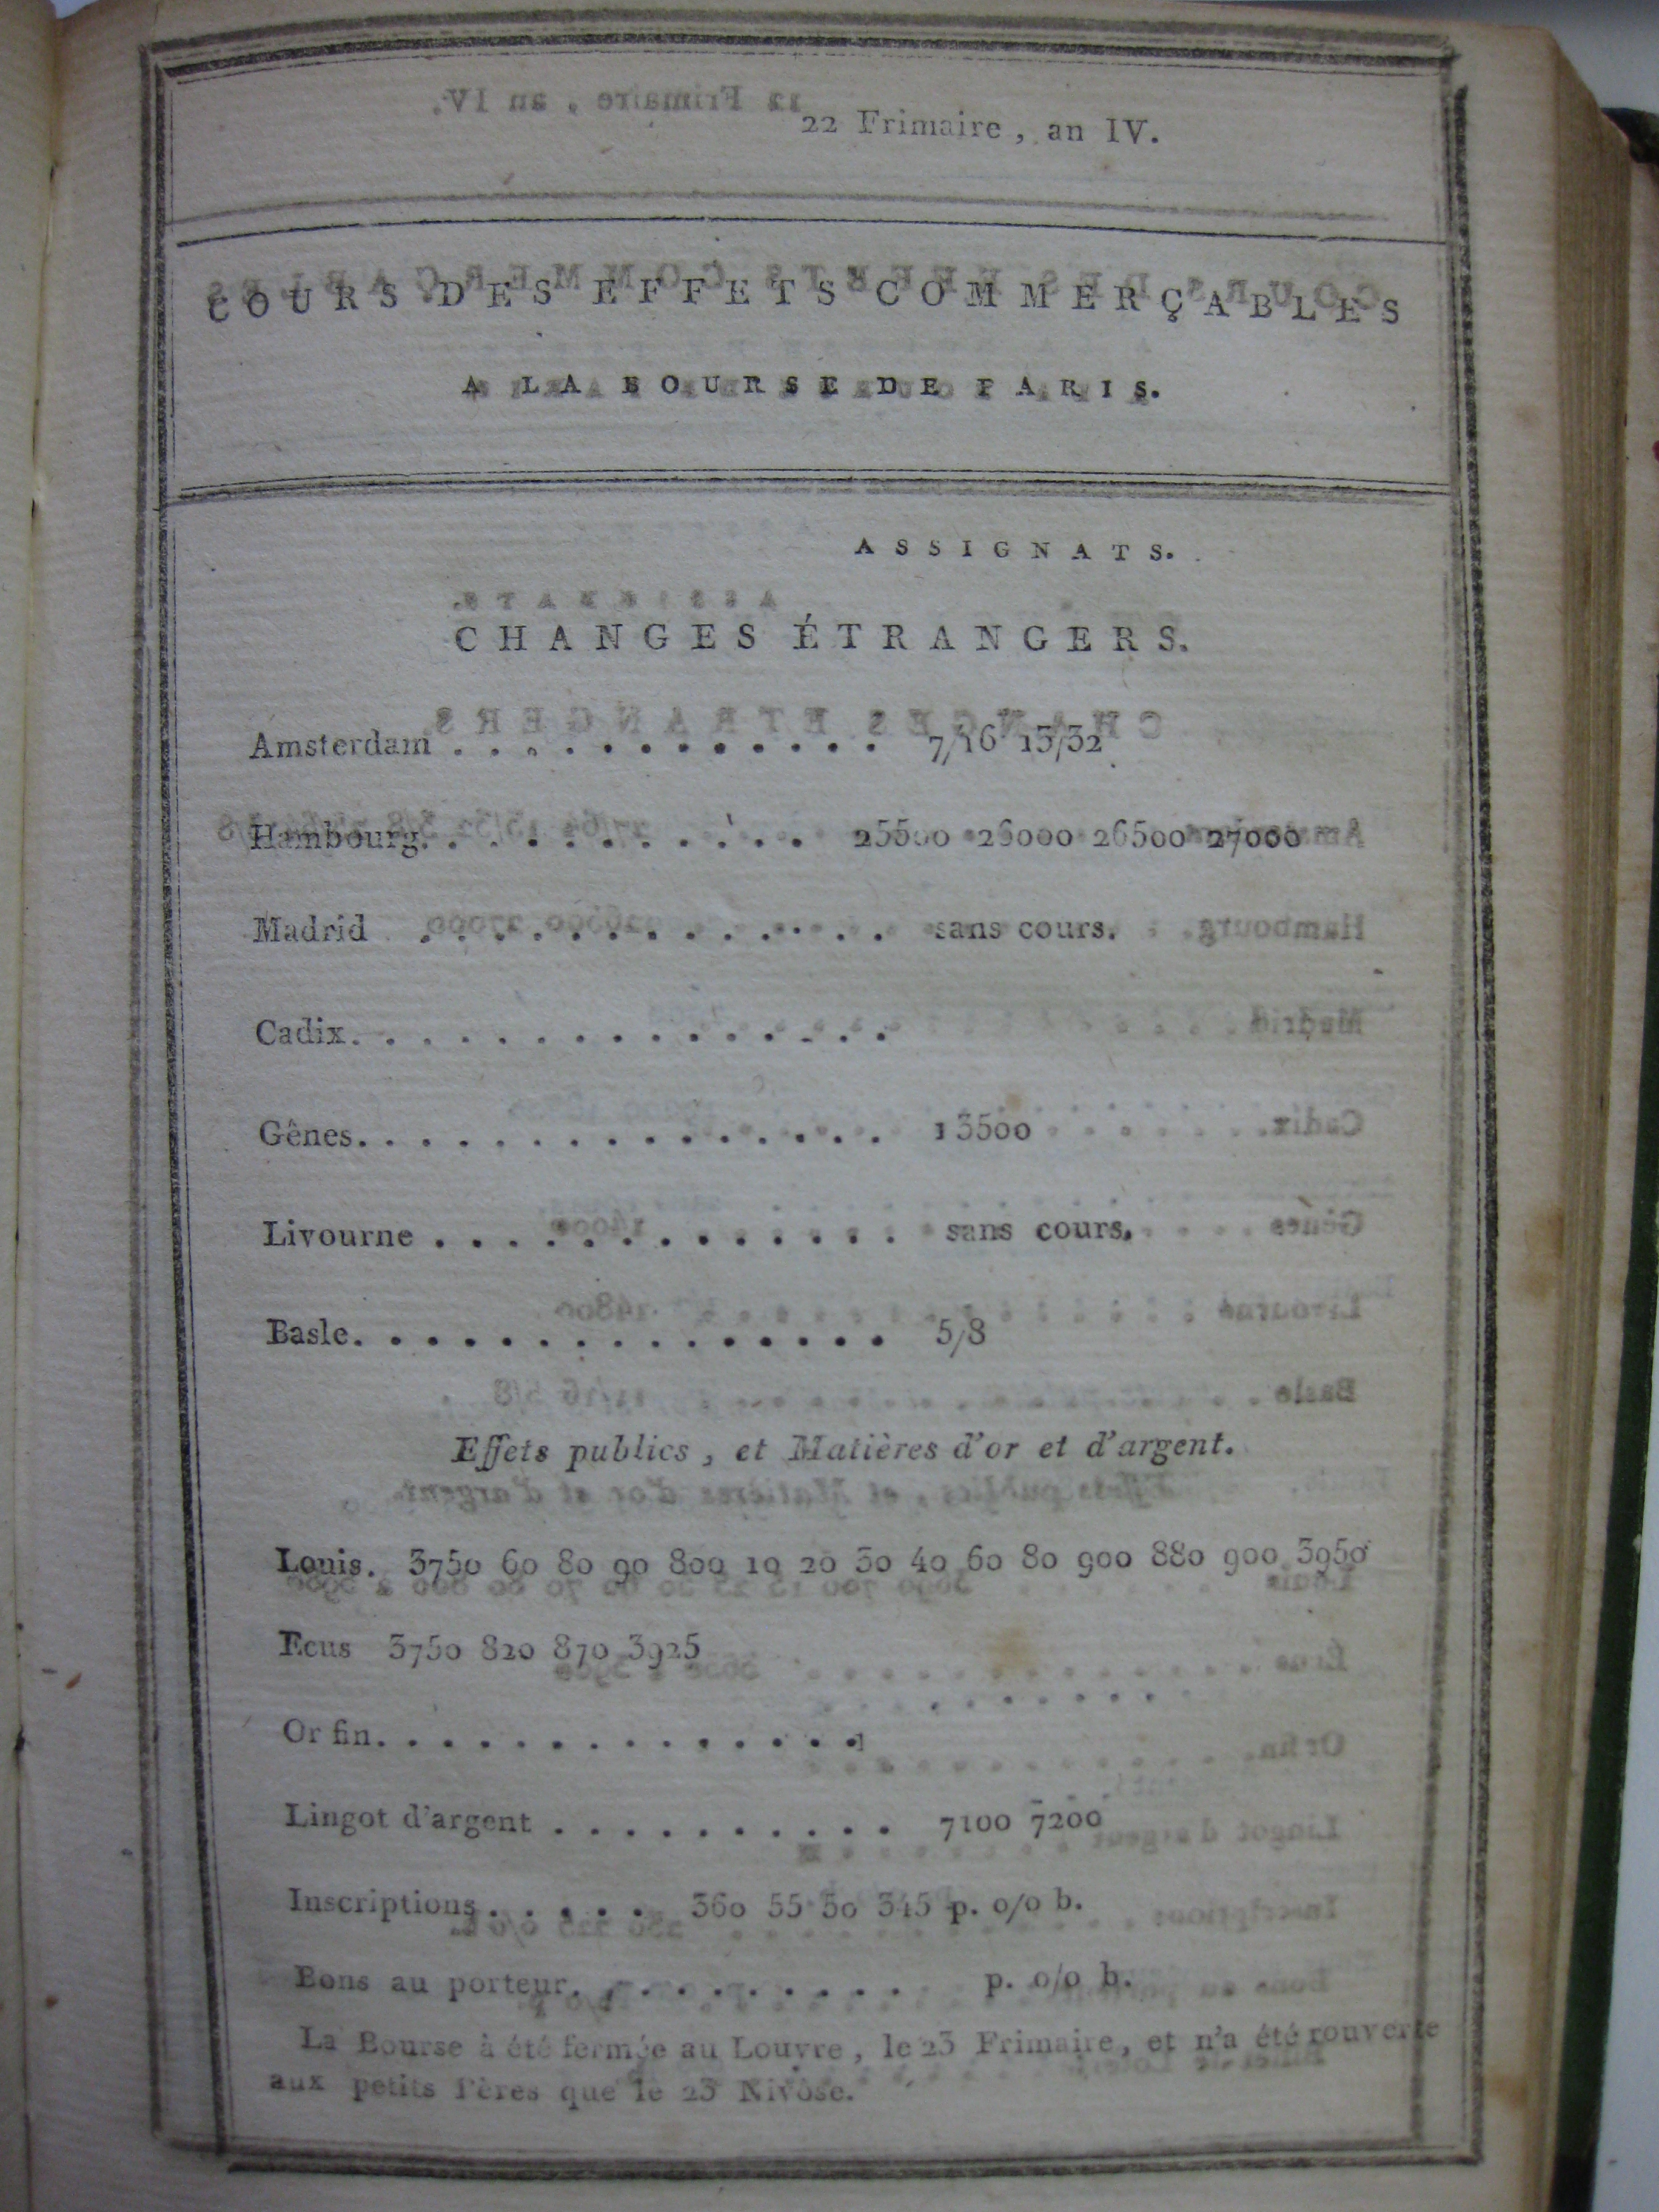 22 Frimaire, an IV.
COURS DES EFFETS COMMERÇABLES
A LA BOURSE DE PARIS.
ASSIGNATS.
CHANGES ÉTRANGERS.
Amsterdam . . . . . . . . . . . . 7/16 13/32
Hambourg. . . . . . . . . . . 25500 26000 26500 27000
Madrid . . . . . . . . . . . . . sans cours.
Cadix. . . . . . . . . . . . . . .
Gênes. . . . . . . . . . . . . . . 13500
Livourne . . . . . . . . . . . . . sans cours.
Basle. . . . . . . . . . . . . . . 5/8
Effets publics, et Matières d'or et d'argent.
Louis. 3750 60 80 90 800 10 20 30 40 60 80 900 880 900 3950
Ecus 3750 820 870 3925
Or fin. . . . . . . . . . . . . .
Lingot d'argent . . . . . . . . . . 7100 7200
Inscriptions . . . . . 360 55 50 345 p. 0/0 b.
Bons au porteur. . . . . . . . . . p. 0/0 b.
La Bourse à été fermée au Louvre, le 23 Frimaire, et n'a été rouverte
aux petits Pères que le 23 Nivôse.